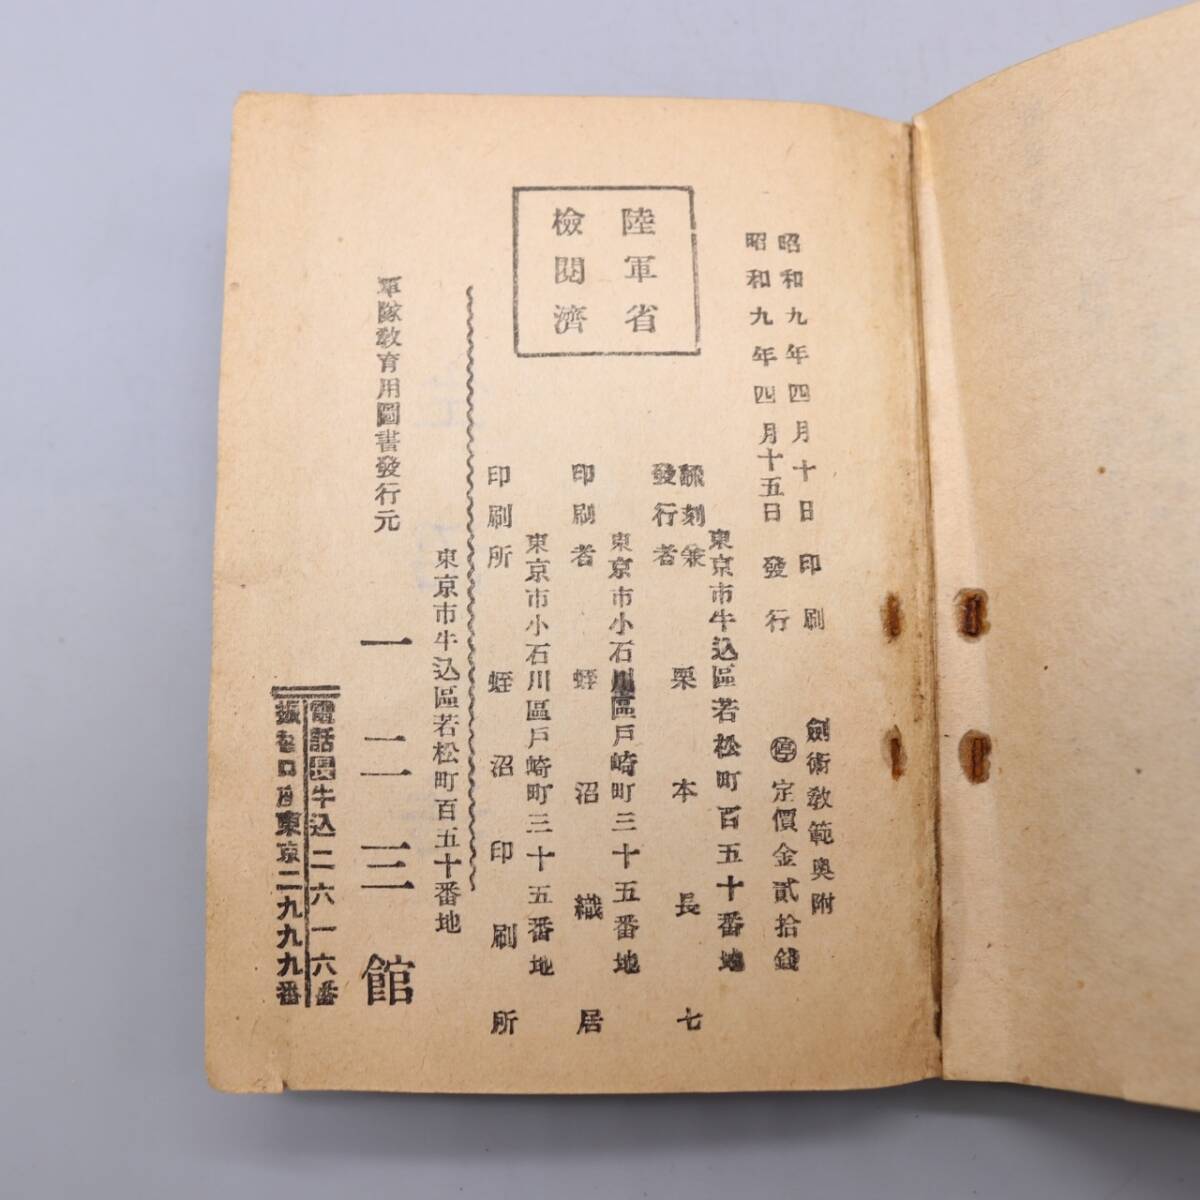 昭和九年四月十日印刷
昭和九年四月十五日發行
劍術教範奥附
停定價金貳拾錢
陸軍省
檢閱濟
東京市牛込區若松町百五十番地
飜刻兼
發行者
栗本長七
東京市小石川區戸崎町三十五番地
印刷者 蛭沼織居
東京市小石川區戸崎町三十五番地
印刷所 蛭沼印刷所
東京市牛込區若松町百五十番地
軍隊教育用圖書發行元
一二三館
電話長牛込二六一六番
振替口座東京二九九九番